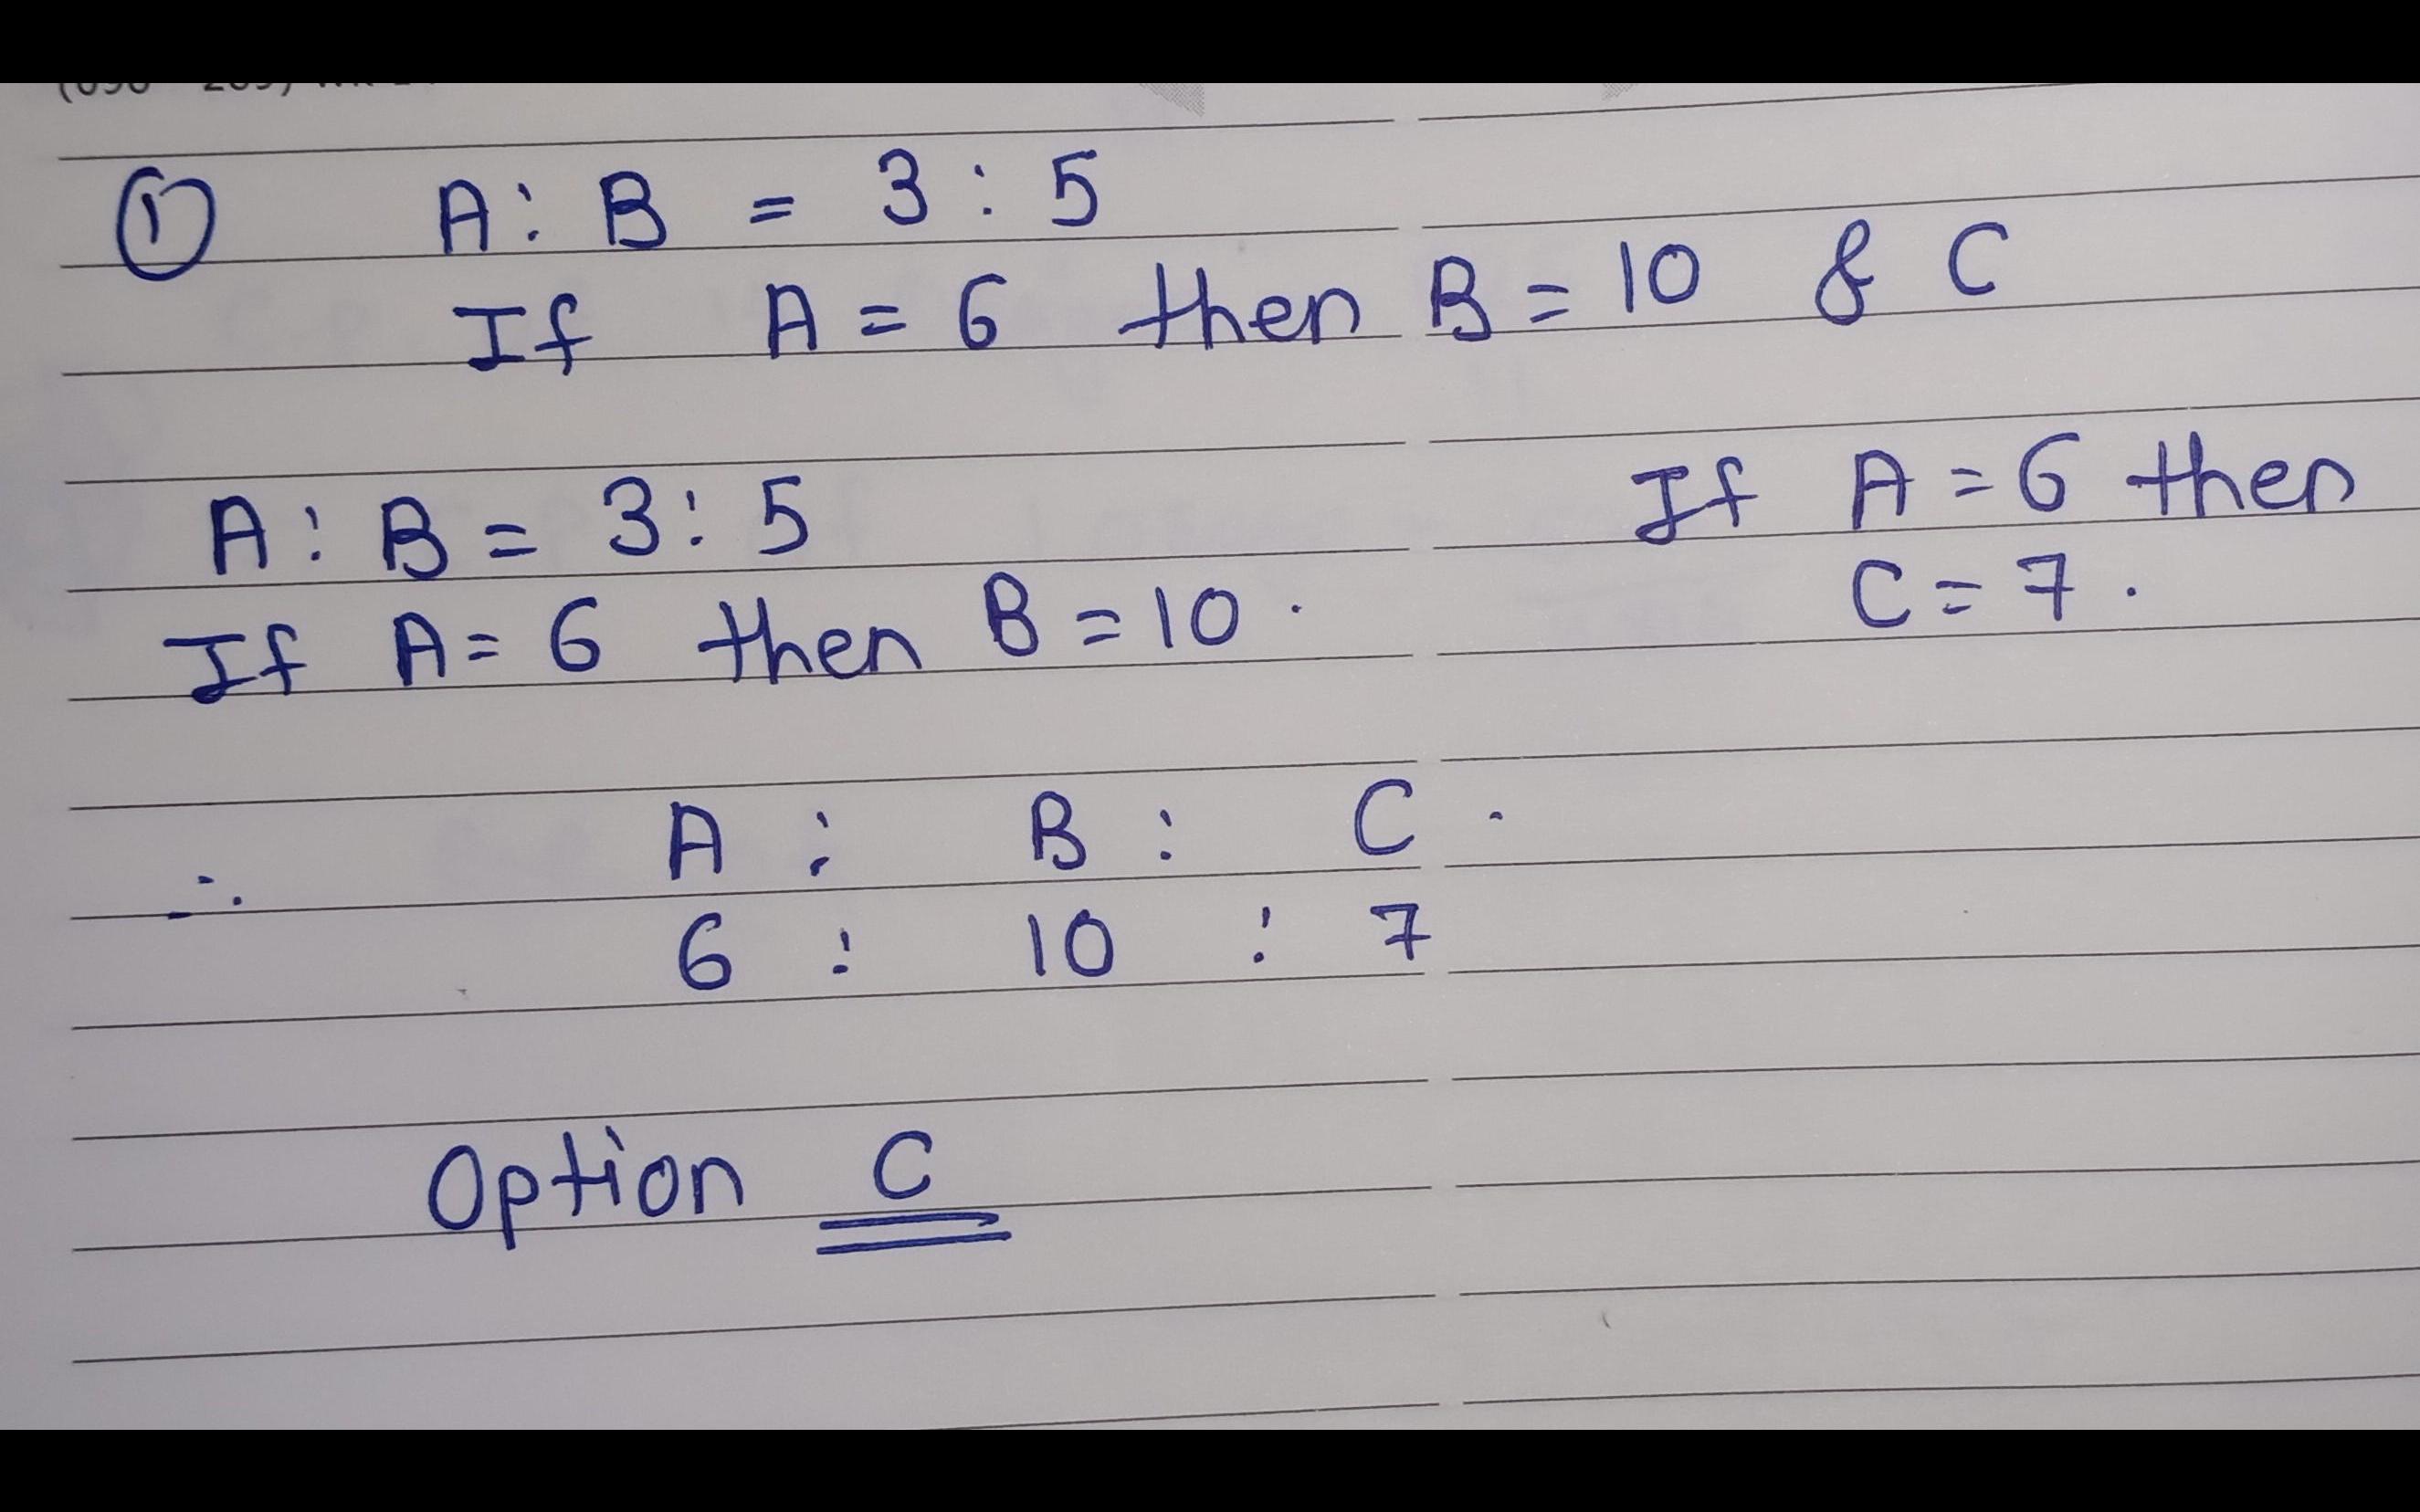 ① A : B = 3 : 5
If A = 6 then B = 10 & C
A : B = 3 : 5
If A = 6 then B = 10 .
If A = 6 then
C = 7 .
∴ A : B : C .
6 : 10 : 7
Option C